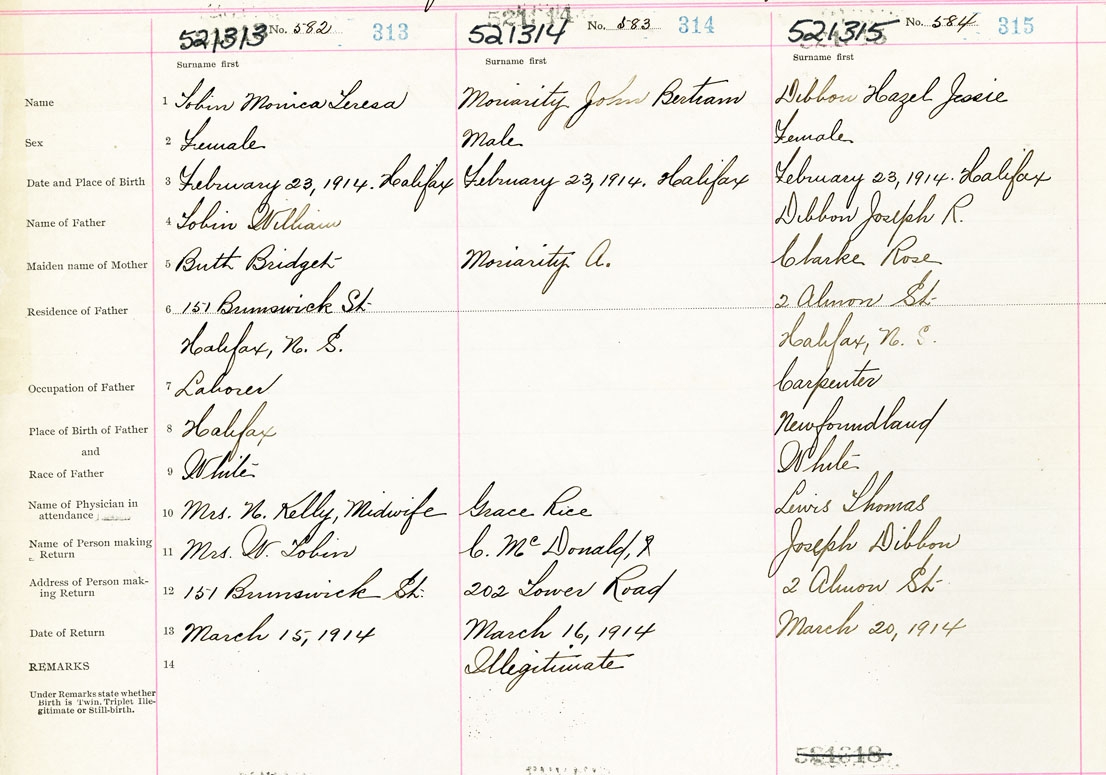 521313 No. 582 313
521314 No. 583 314
521315 No. 584 315
Surname first Surname first Surname first
Name 1 Tobin Monica Teresa Moriarity John Bertram Dibbon Hazel Jessie
Sex 2 Female Male Female
Date and Place of Birth 3 February 23, 1914. Halifax February 23, 1914. Halifax February 23, 1914. Halifax
Name of Father 4 Tobin William Dibbon Joseph R.
Maiden name of Mother 5 Buth Bridget Moriarity A. Clarke Rose
Residence of Father 6 151 Brunswick St. 2 Almon St.
Halifax, N. S. Halifax, N. S.
Occupation of Father 7 Laborer Carpenter
Place of Birth of Father 8 Halifax Newfoundland
and
Race of Father 9 White White
Name of Physician in
attendance 10 Mrs. N. Kelly, Midwife Grace Rice Lewis Thomas
Name of Person making
Return 11 Mrs. W. Tobin C. McDonald, Joseph Dibbon
Address of Person mak-
ing Return 12 151 Brunswick St. 202 Tower Road 2 Almon St.
Date of Return 13 March 15, 1914 March 16, 1914 March 20, 1914
REMARKS 14 Illegitimate
Under Remarks state whether
Birth is Twin, Triplet Ille-
gitimate or Still-birth.